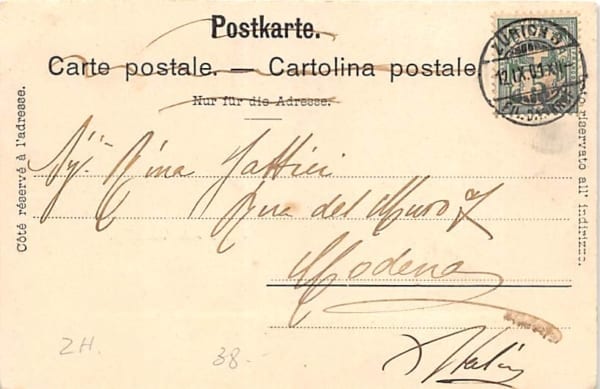 Postkarte.
Carte postale. — Cartolina postale.
Nur für die Adresse.
Côté réservé à l'adresse.
Lato riservato all' indirizzo.
ZÜRICH
12.IX.01.XII-
Sig. Rina
Rua del Muro 7
Modena
Italia
ZH.
38.-